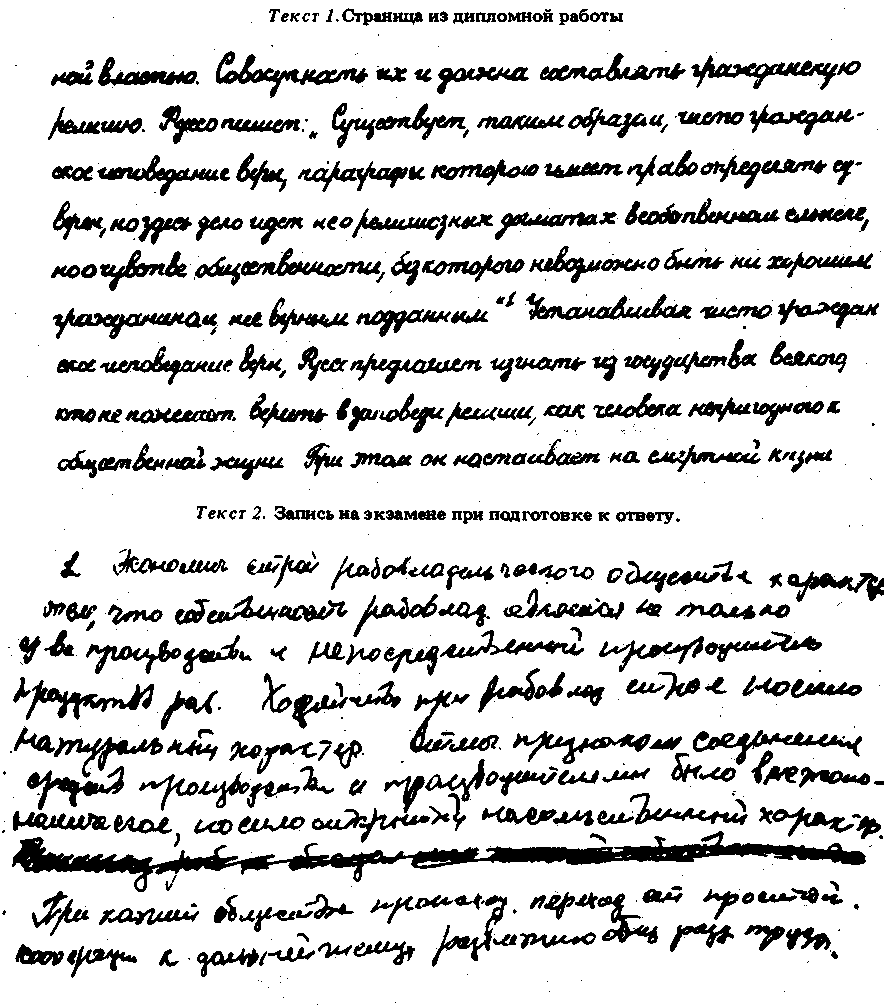 Текст 1. Страница из дипломной работы
ной властью. Совокупность их и должна составлять гражданскую
религию. Руссо пишет: „Существует, таким образом, чисто граждан-
ское исповедание веры, параграфы которого имеет право определять су-
верен, но здесь дело идет не о религиозных догматах в собственном смысле,
но о чувстве общественности, без которого невозможно быть ни хорошим
гражданином, не верным подданным"1 Устанавливая чисто граждан
ское исповедание веры, Руссо предлагает изгнать из государства всякого,
кто не пожелает верить в заповеди религии, как человека непригодного к
общественной жизни При этом он настаивает на смертной казни
Текст 2. Запись на экзамене при подготовке к ответу.
1 Эконом строй рабовладельческого общества характер
тем, что собственность рабовлад. не только
производства и непосредственный производитель
продуктов раб. Хозяйство при рабовлад строе носило
натуральный характер. признаком соединения
средств производства и производителями было внеэконо-
мическое, носило открытый насильственный характер.
При общество происход. переход от простой
кооперации к дальнейшему развитию общ разд труда.